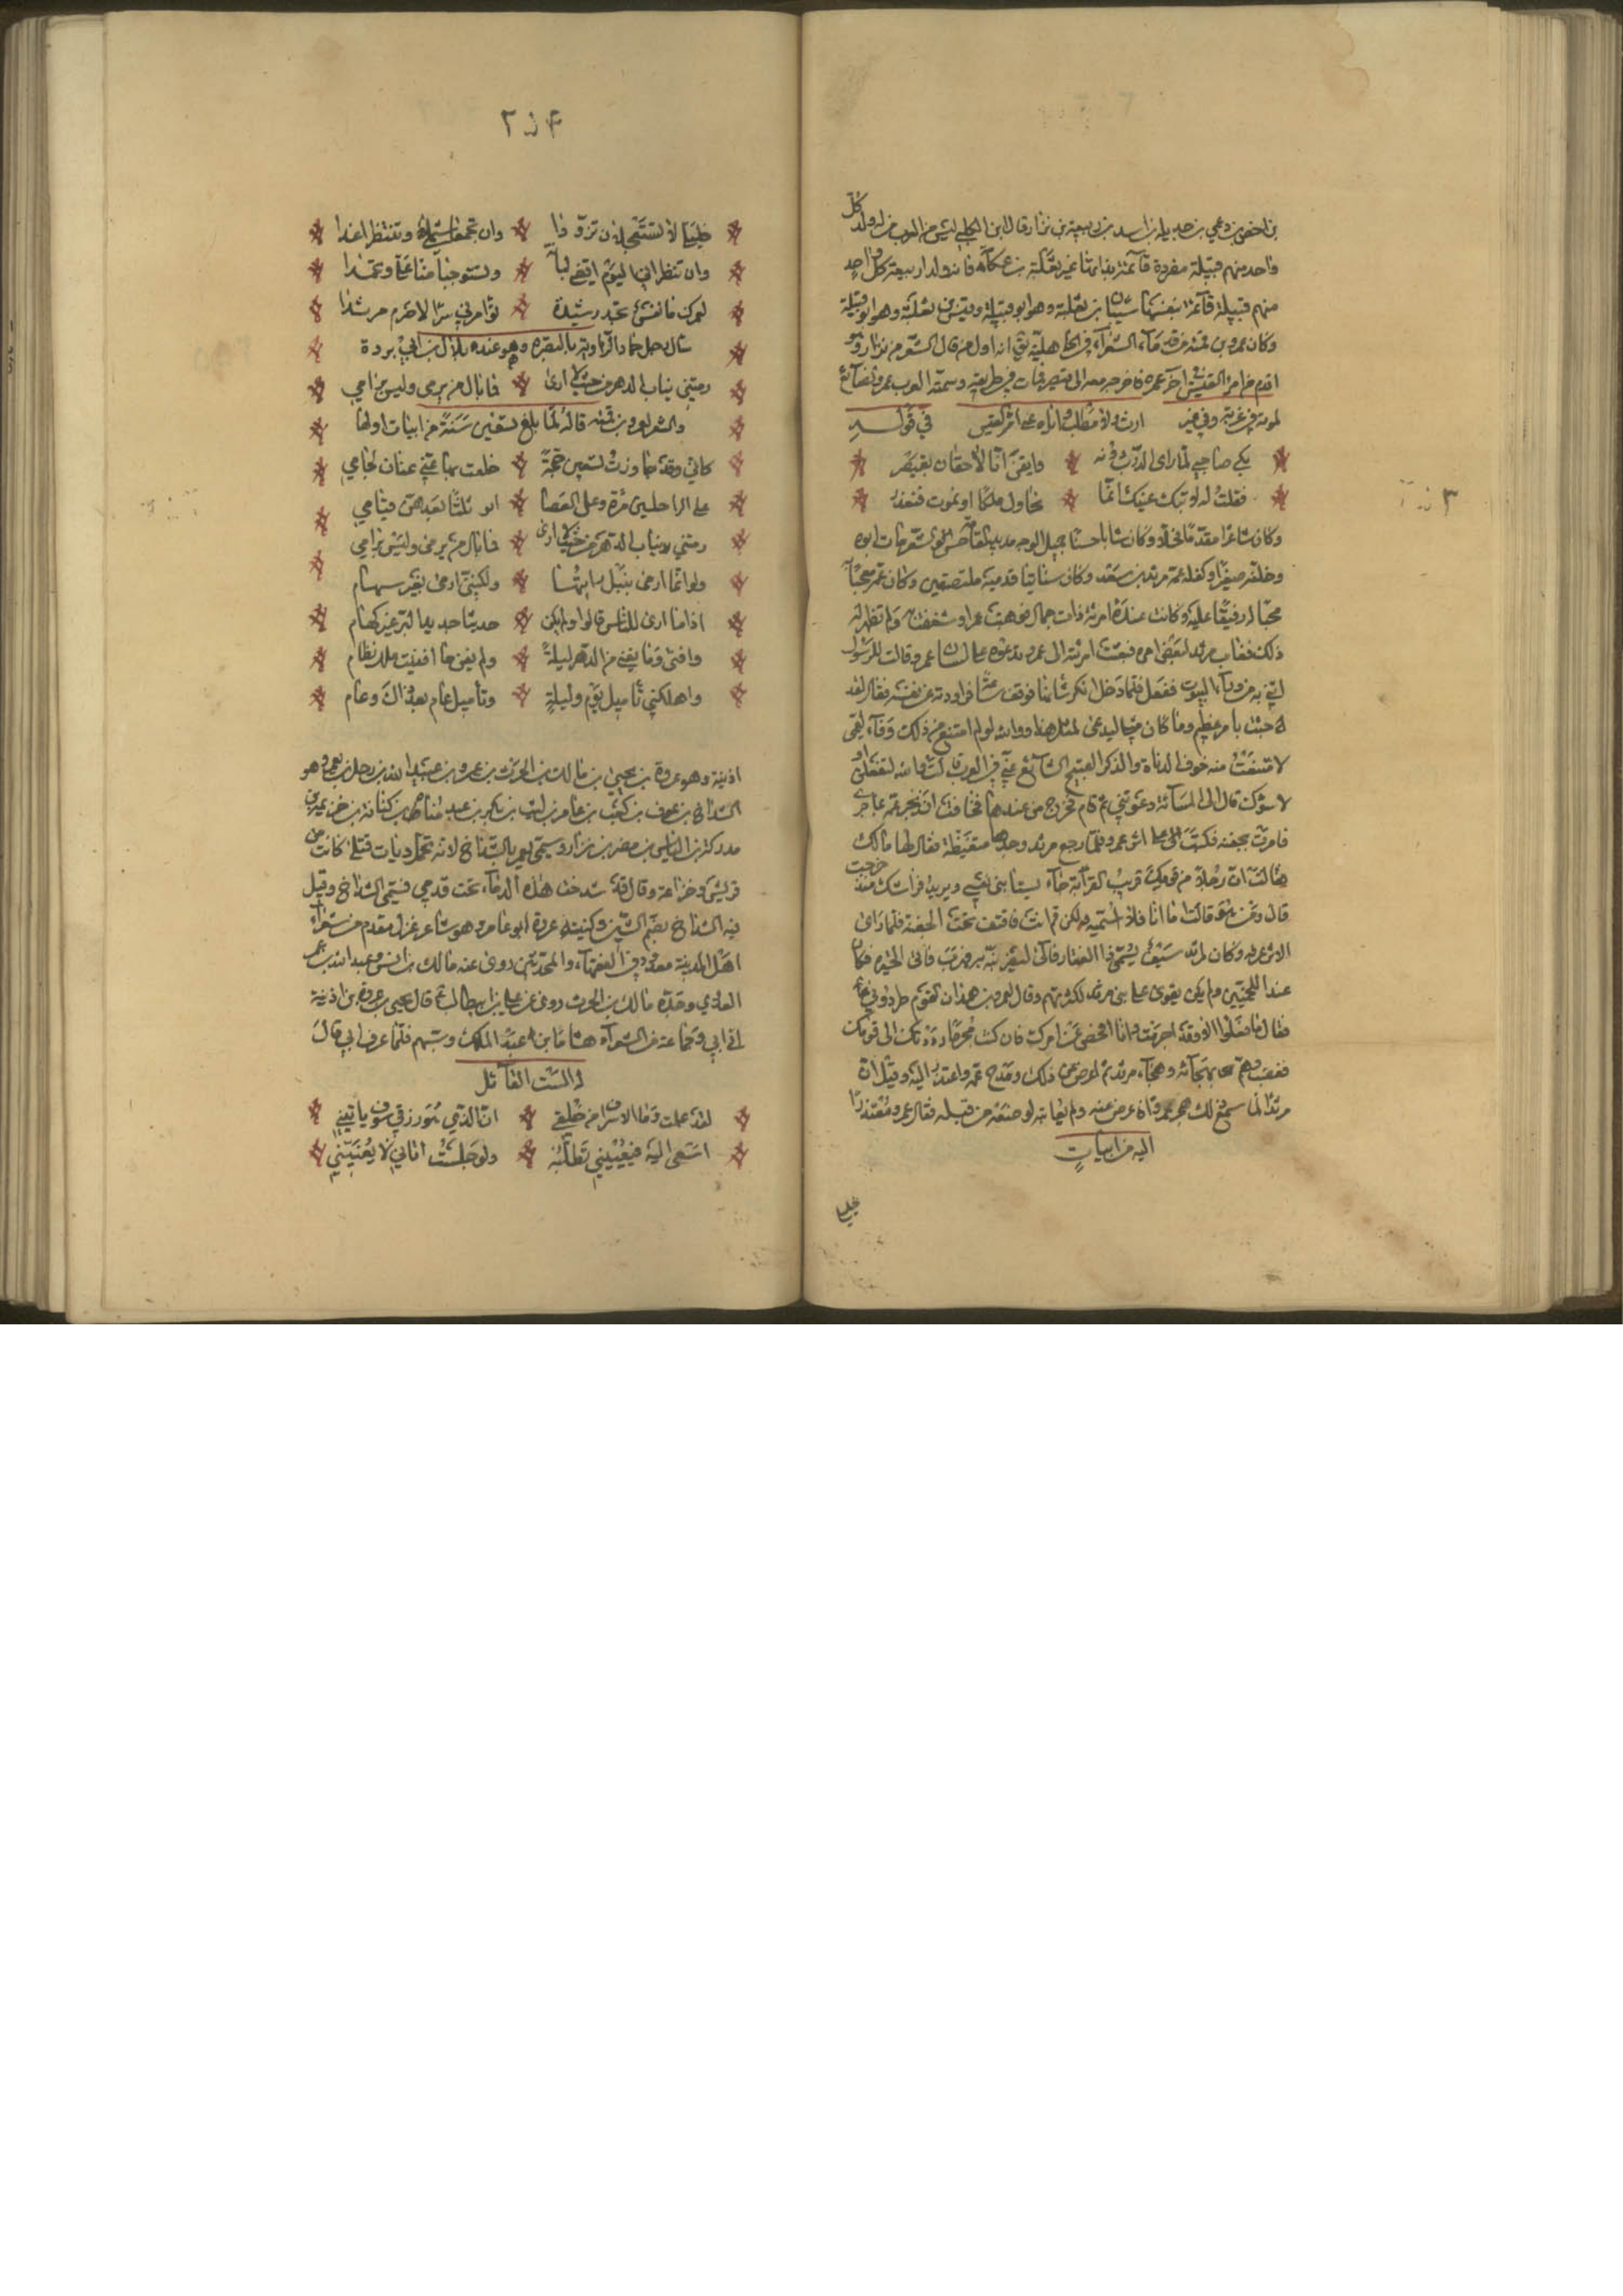 بن افصى بن دعمي بن جديلة بن اسد بن ربيعة بن نزار قال ابن الكلبي ليس من العرب من له ولد كل
واحد منهم قبيلة مفردة قائمة بذاتها غير ثعلبة بن عكابة فانه ولد اربعة كل واحد
منهم قبيلة قائمة بنفسها شيبان بن ثعلبة وهو ابو قبيلة وقيس بن ثعلبة وهو ابو قبيلة
وكان عمرو بن قمئة من قدماء الشعراء في الجاهلية يقال انه اول من قال الشعر من نزار وهو
اقدم من امرئ القيس آخر عمره فاخرجه معه الى قيصر فمات في طريقه وسمته العرب عمرو الضائع
لموته في غربة وفي غير ارب ولا مطلب واياه عنى امرؤ القيس في قوله
بكى صاحبي لما راى الدرب دونه وايقن انا لاحقان بقيصر
فقلت له لا تبك عينك انما نحاول ملكا او نموت فنعذر
وكان شاعرا مقدما وكان شابا حسنا جميل الوجه مديد القامة حسن الشعر مات ابوه
وخلفه صغيرا وكفله عمه مرثد بن سعد وكان سبابتا قدميه ملتصقتين وكان عمه
محبا له رفيقا عليه وكانت عنده امرئة ذات جمال فهويت عمرا وشغفت به ولم تظهر له
ذلك فغاب مرثد لبعض امره فبعثت امرئته الى عمرو تدعوه على لسان عمه وقالت للرسول
ايتني به من وراء البيوت ففعل فلما دخل انكر شانها فوقف فراودته عن نفسه فقال لقد
جئت بامر عظيم وما كان مثلي ليدعى لمثل هذا والله لو لم امتنع من ذلك وفاء لعمي
لامتنعت منه خوف الدناءة والذكر القبيح الشائع عني في العرب قالت والله لتفعلن او
لاسوءنك قال الى المساءة دعوتني ثم قام فخرج من عندها فخافت ان يخبر عمه بما جرى
فامرت بجفنة فكبت على اثر عمرو فلما رجع مرثد وجدها متغيظة فقال لها مالك
قالت ان رجلا من قومك قريب القرابة جاء يستامني نفسي ويريد فراشك منذ خرجت
قال ومن هو قالت اما انا فلا اسميه ولكن قم انت فاقتف تحت الجفنة فلما راى
الاثر عرفه وكان لمرثد سيف يسمى ذا الفقار فاتى ليضربه به فهرب فاتى الحيرة فكان
عند اللخميين ولم يكن يقوى على بني مرثد لكثرتهم وقال لعمرو بن هند ان القوم طردوني
فقال ما فعلوا الا وقد اجرمت وانا افحص عن امرك فان كنت مجرما رددتك الى قومك
فغضب وهم بهجائه وهجاء مرثد ثم اعرض عن ذلك ومدح عمه واعتذر اليه وقيل ان
مرثدا لما سمع ذلك هجر عمرا واعرض عنه ولم يعاقبه لموضعه من قبله فقال عمرو معتذرا
اليه من ابيات
خليلي
٢٥٤
خليلي لا تستعجلا ان تزودا وان تجمعا شملي وتنتظرا غدا
وان تنظراني اليوم اقض لبانة وتستوجبا منا علي وتحمدا
لعمرك ما نفسي بجد رشيدة تؤامرني سرا لاصرم مرثدا
سال رجل حمادا الراوية بالبصرة وهو عند بلال بن ابي بردة
رمتني بنات الدهر من حيث لا ارى فما بال من يرمى وليس برامي
والشعر لعمرو بن قمئة قاله لما بلغ تسعين سنة من ابيات اولها
كاني وقد جاوزت تسعين حجة خلعت بها عني عنان لجامي
على الراحتين مرة وعلى العصا انوء ثلاثا بعدهن قيامي
رمتني بنات الدهر من حيث لا ارى فما بال من يرمى وليس برامي
ولو انما ارمى بنبل رايتها ولكنني ارمى بغير سهام
اذا ما راني الناس قالوا الم يكن حديثا جديد البز غير كهام
وافنى وما يفنى من الدهر ليلة ولم يغن ما افنيت سلك نظام
واهلكني تاميل يوم وليلة وتاميل عام بعد ذاك وعام
اذينة وهو عروة بن يحيى بن مالك بن الحرث بن عمرو بن عبد الله بن رجل بن يعمر وهو
الشداخ بن عوف بن كعب بن عامر بن ليث بن بكر بن عبد مناة بن كنانة بن خزيمة بن
مدركة بن الياس بن مضر بن نزار وسمي يعمر بالشداخ لانه تحمل ديات قتلى كانت بين
قريش وخزاعة وقال قد شدخت هذه الدماء تحت قدمي فسمي الشداخ وقيل
فيه الشداخ بضم الشين وكنية عروة ابو عامر وهو شاعر غزل مقدم من شعراء
اهل المدينة معدود في الفقهاء والمحدثين روى عنه مالك بن انس وعبد الله بن عمر
العدوي وجده مالك بن الحرث روى عن علي بن ابي طالب قال يحيى بن عروة بن اذينة
اتى ابي وجماعة من الشعراء هشام بن عبد الملك ونسبهم فلما عرف ابي قال
له الست القائل
لقد علمت وما الاسراف من خلقي ان الذي هو رزقي سوف ياتيني
اسعى اليه فيعييني تطلبه ولو جلست اتاني لا يعنيني